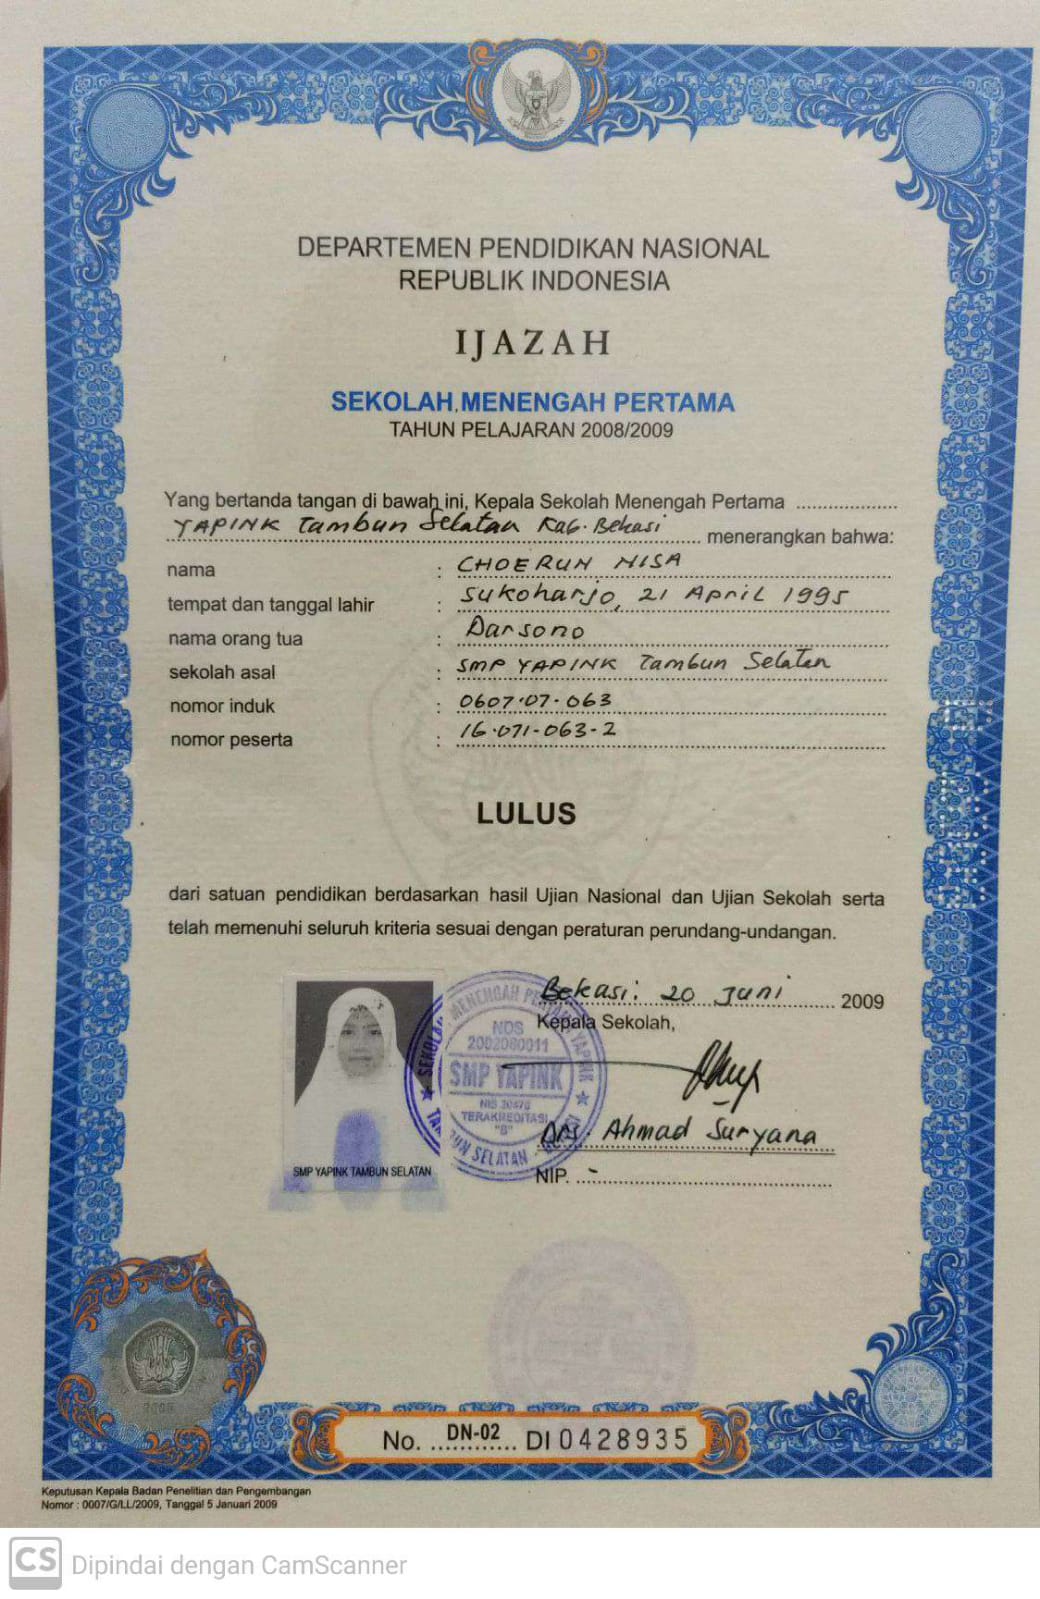 DEPARTEMEN PENDIDIKAN NASIONAL
REPUBLIK INDONESIA
IJAZAH
SEKOLAH MENENGAH PERTAMA
TAHUN PELAJARAN 2008/2009
Yang bertanda tangan di bawah ini, Kepala Sekolah Menengah Pertama ..................
YAPINK Tambun Selatan Kab. Bekasi menerangkan bahwa:
nama : CHOERUN NISA
tempat dan tanggal lahir : Sukoharjo, 21 April 1995
nama orang tua : Darsono
sekolah asal : SMP YAPINK Tambun Selatan
nomor induk : 0607.07.063
nomor peserta : 16-071-063-2
LULUS
dari satuan pendidikan berdasarkan hasil Ujian Nasional dan Ujian Sekolah serta
telah memenuhi seluruh kriteria sesuai dengan peraturan perundang-undangan.
Bekasi, 20 Juni 2009
Kepala Sekolah,
SEKOLAH MENENGAH PERTAMA YAPINK
NDS
2002060011
SMP YAPINK
NIS
TERAKREDITASI
"B"
TAMBUN SELATAN
Drs. Ahmad Suryana
SMP YAPINK TAMBUN SELATAN
NIP. -
No. DN-02 DI 0428935
Keputusan Kepala Badan Penelitian dan Pengembangan
Nomor : 0007/G/LL/2009, Tanggal 5 Januari 2009
CS Dipindai dengan CamScanner